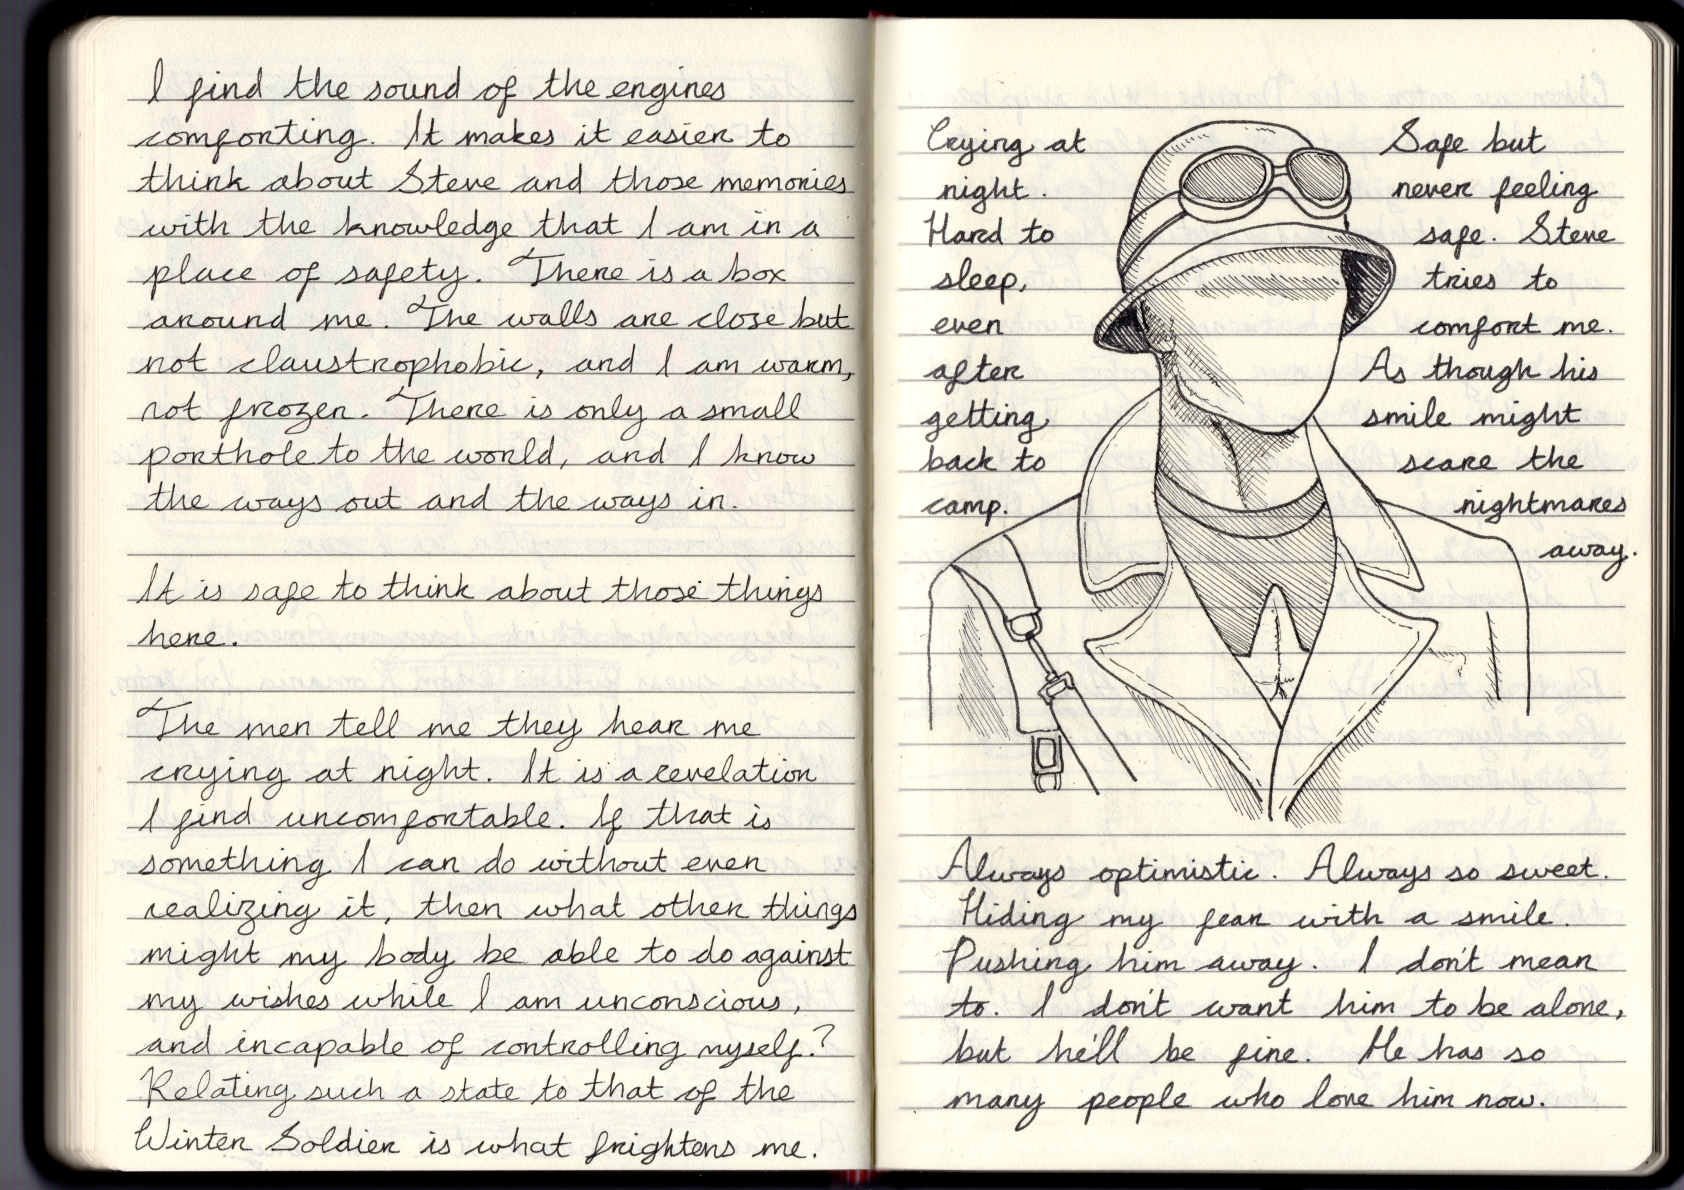 I find the sound of the engines
comforting. It makes it easier to
think about Steve and those memories
with the knowledge that I am in a
place of safety. There is a box
around me. The walls are close but
not claustrophobic, and I am warm,
not frozen. There is only a small
porthole to the world, and I know
the ways out and the ways in.
It is safe to think about those things
here.
The men tell me they hear me
crying at night. It is a revelation
I find uncomfortable. If that is
something I can do without even
realizing it, then what other things
might my body be able to do against
my wishes while I am unconscious,
and incapable of controlling myself?
Relating such a state to that of the
Winter Soldier is what frightens me.
Crying at
night.
Hard to
sleep,
even
after
getting
back to
camp.
Safe but
never feeling
safe. Steve
tries to
comfort me.
As though his
smile might
scare the
nightmares
away.
Always optimistic. Always so sweet.
Hiding my fear with a smile.
Pushing him away. I don't mean
to. I don't want him to be alone,
but he'll be fine. He has so
many people who love him now.